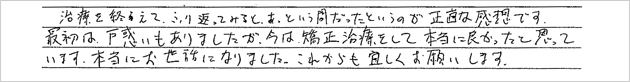 治療を終えて、ふり返ってみると、あっという間だったというのが正直な感想です。
最初は、戸惑いもありましたが、今は、矯正治療をして本当に良かったと思って
います。本当にお世話になりました。これからも宜しくお願いします。